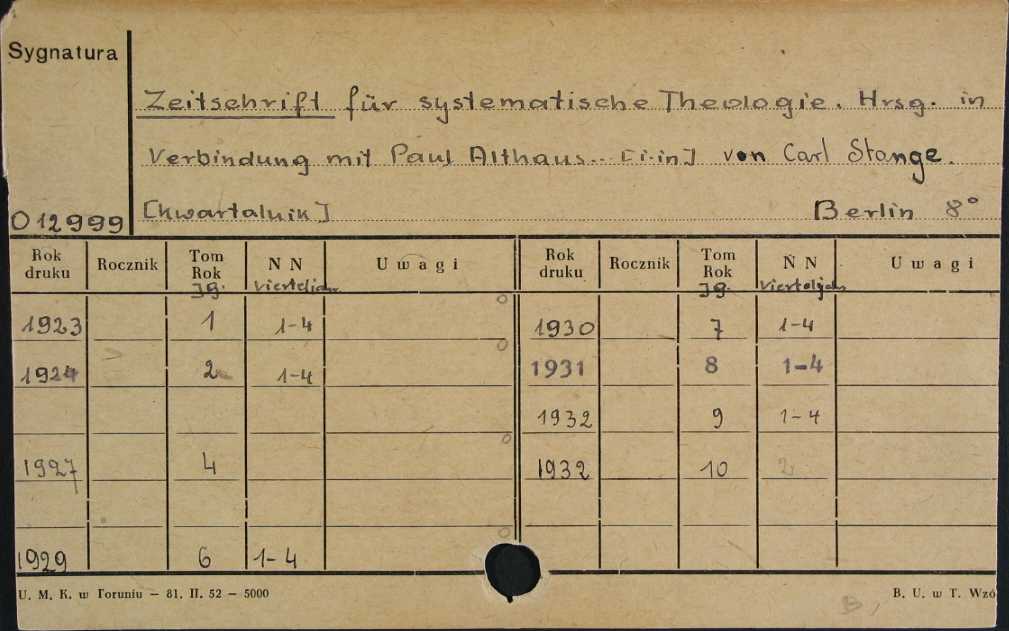 Sygnatura
Zeitschrift für systematische Theologie. Hrsg. in
Verbindung mit Paul Althaus... [i in] von Carl Stange.
O 12999 [kwartalnik] Berlin 8°
Rok druku Rocznik Tom Rok N N Uwagi Rok druku Rocznik Tom Rok N N Uwagi
Jg. Jg.
1923 1 1-4 1930 7 1-4
1924 2 1-4 1931 8 1-4
1932 9 1-4
1927 4 1932 10 2
1929 6 1-4
U. M. K. w Toruniu – 81. II. 52 – 5000 B. U. w T. Wzó
B,